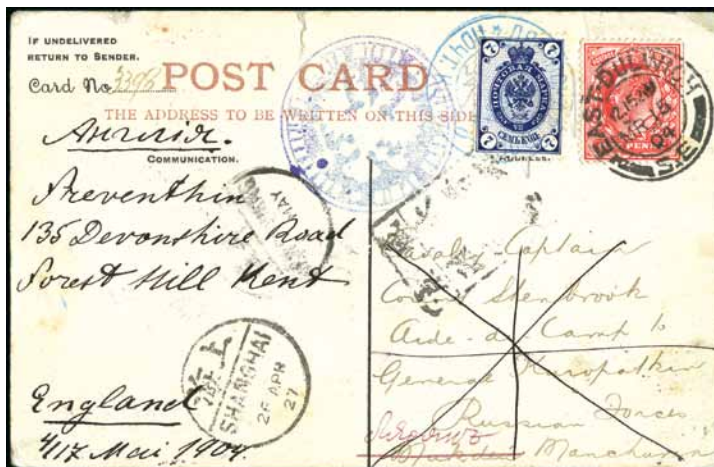 IF UNDELIVERED
RETURN TO SENDER.
Card No. 3398
POST CARD
THE ADDRESS TO BE WRITTEN ON THIS SIDE
Англія.
COMMUNICATION.
Preventhin
135 Devonshire Road
Forest Hill Kent
England
4/17 Mai 1904.
SHANGHAI
26 APR
27
7
7
ПОЧТОВАЯ МАРКА
СЕМЬ КОП.
EAST DULWICH
12.15AM
04
S.E.
Cavalry Captain
Count Stenbrook
Aide-de-Camp to
General Kuropatkin
Russian Forces
Mukden Manchuria